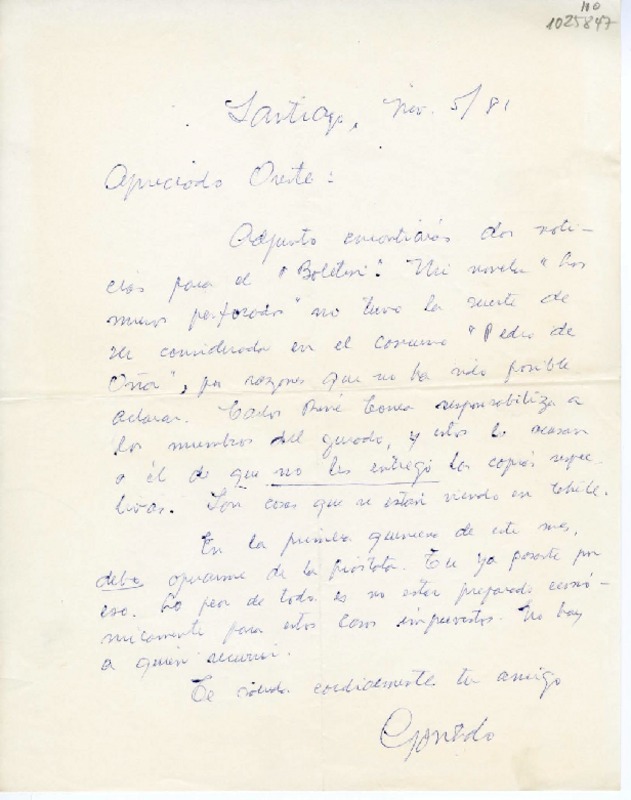 no
1025847
Santiago, Nov. 5/81
Apreciado Oreste:
Adjunto encontrarás dos noti-
cias para el "Boletín". Mi novela "Los
muros perforados" no tuvo la suerte de
ser considerada en el concurso "Pedro de
Oña", por razones que no ha sido posible
aclarar. Carlos René Correa responsabiliza a
los miembros del jurado, y estos lo acusan
a él de que no les entregó las copias respec-
tivas. Son cosas que se están viendo en Chile.
En la primera quincena de este mes,
debo operarme de la próstata. Tu ya pasaste por
eso. Lo peor de todo es no estar preparado econó-
micamente para estos casos imprevistos. No hay
a quién recurrir.
Te saluda cordialmente tu amigo